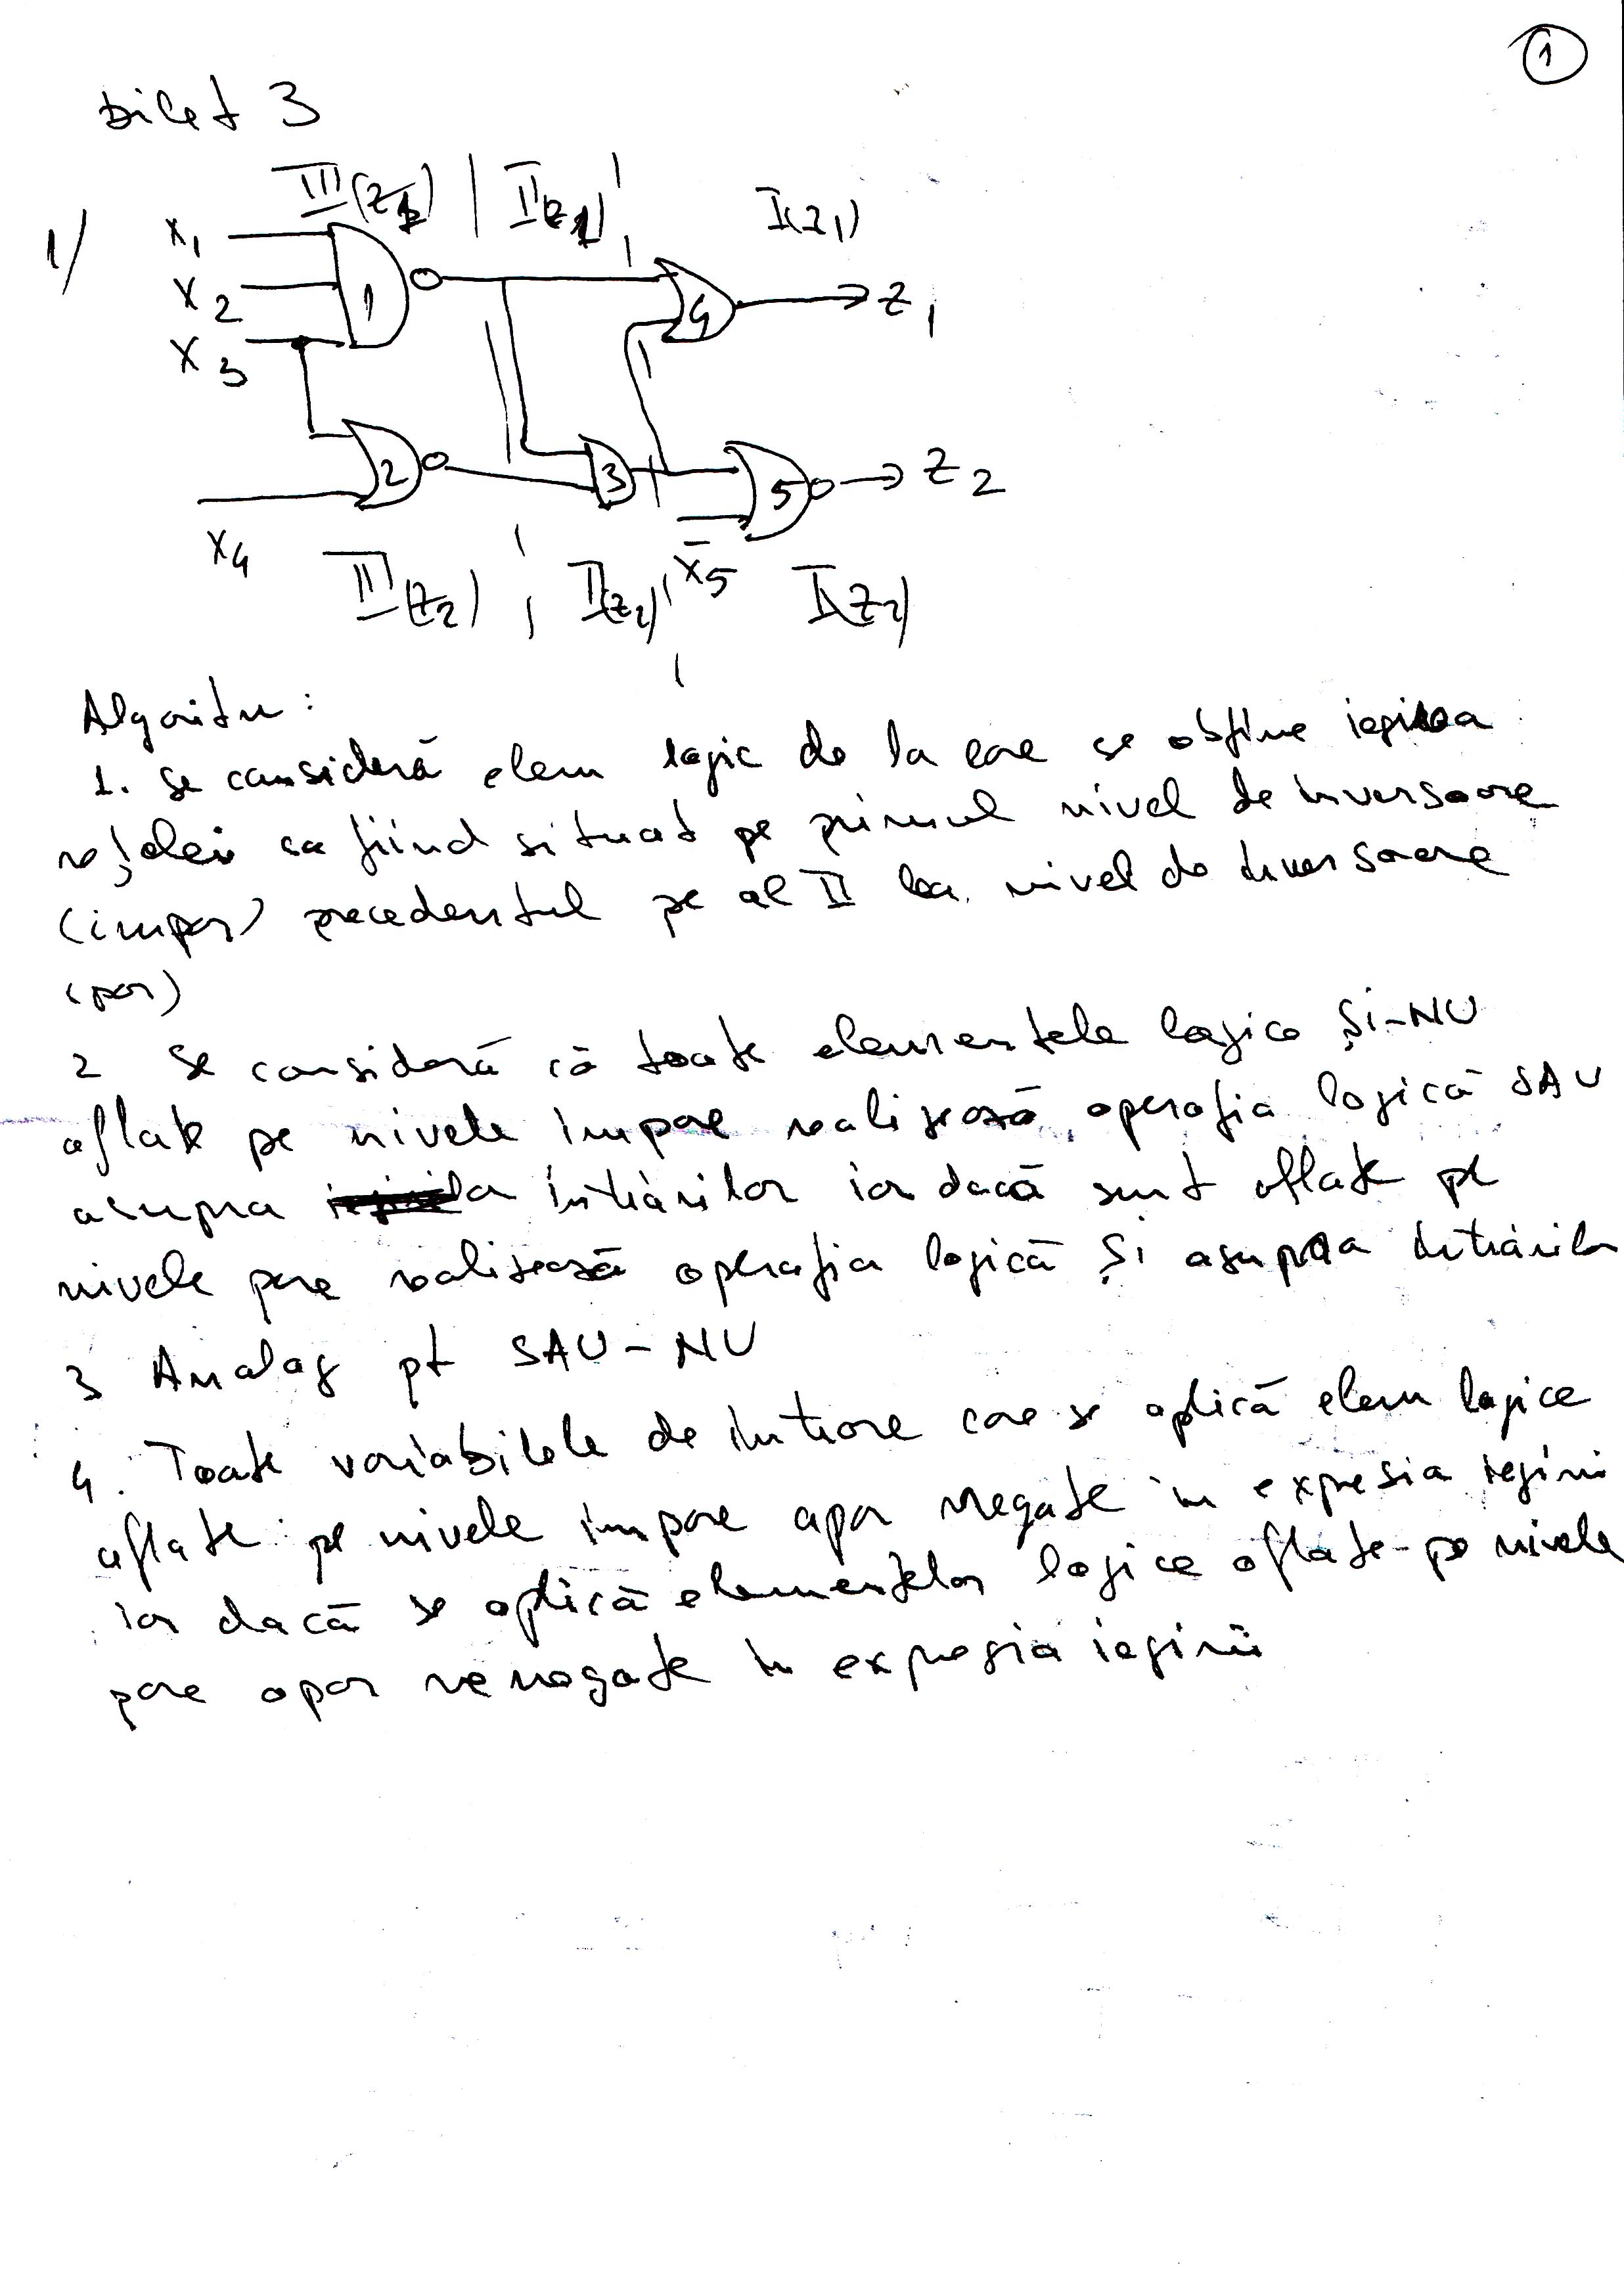 1
Bilet 3
III(Z1) | II(Z1) I(Z1)
1/
x1
x2
x3
1
4
Z1
2
3
5
Z2
x4
x̄5
III(Z2) II(Z2) I(Z2)
Algoritm:
1. Se consideră elem logic de la care se obține ieșirea
rețelei ca fiind situat pe primul nivel de inversoare
(impar) precedentul pe al II lea nivel de inversoare
(par)
2 Se consideră că toate elementele logice ȘI-NU
aflate pe nivele impare realizează operația logică SAU
asupra intrărilor iar dacă sunt aflate pe
nivele pare realizează operația logică ȘI asupra intrărilor
3 Analog pt SAU-NU
4. Toate variabilele de intrare care se aplică elem logice
aflate pe nivele impare apar negate în expresia ieșirii
iar dacă se aplică elementelor logice aflate pe nivele
pare apar nenegate în expresia ieșirii